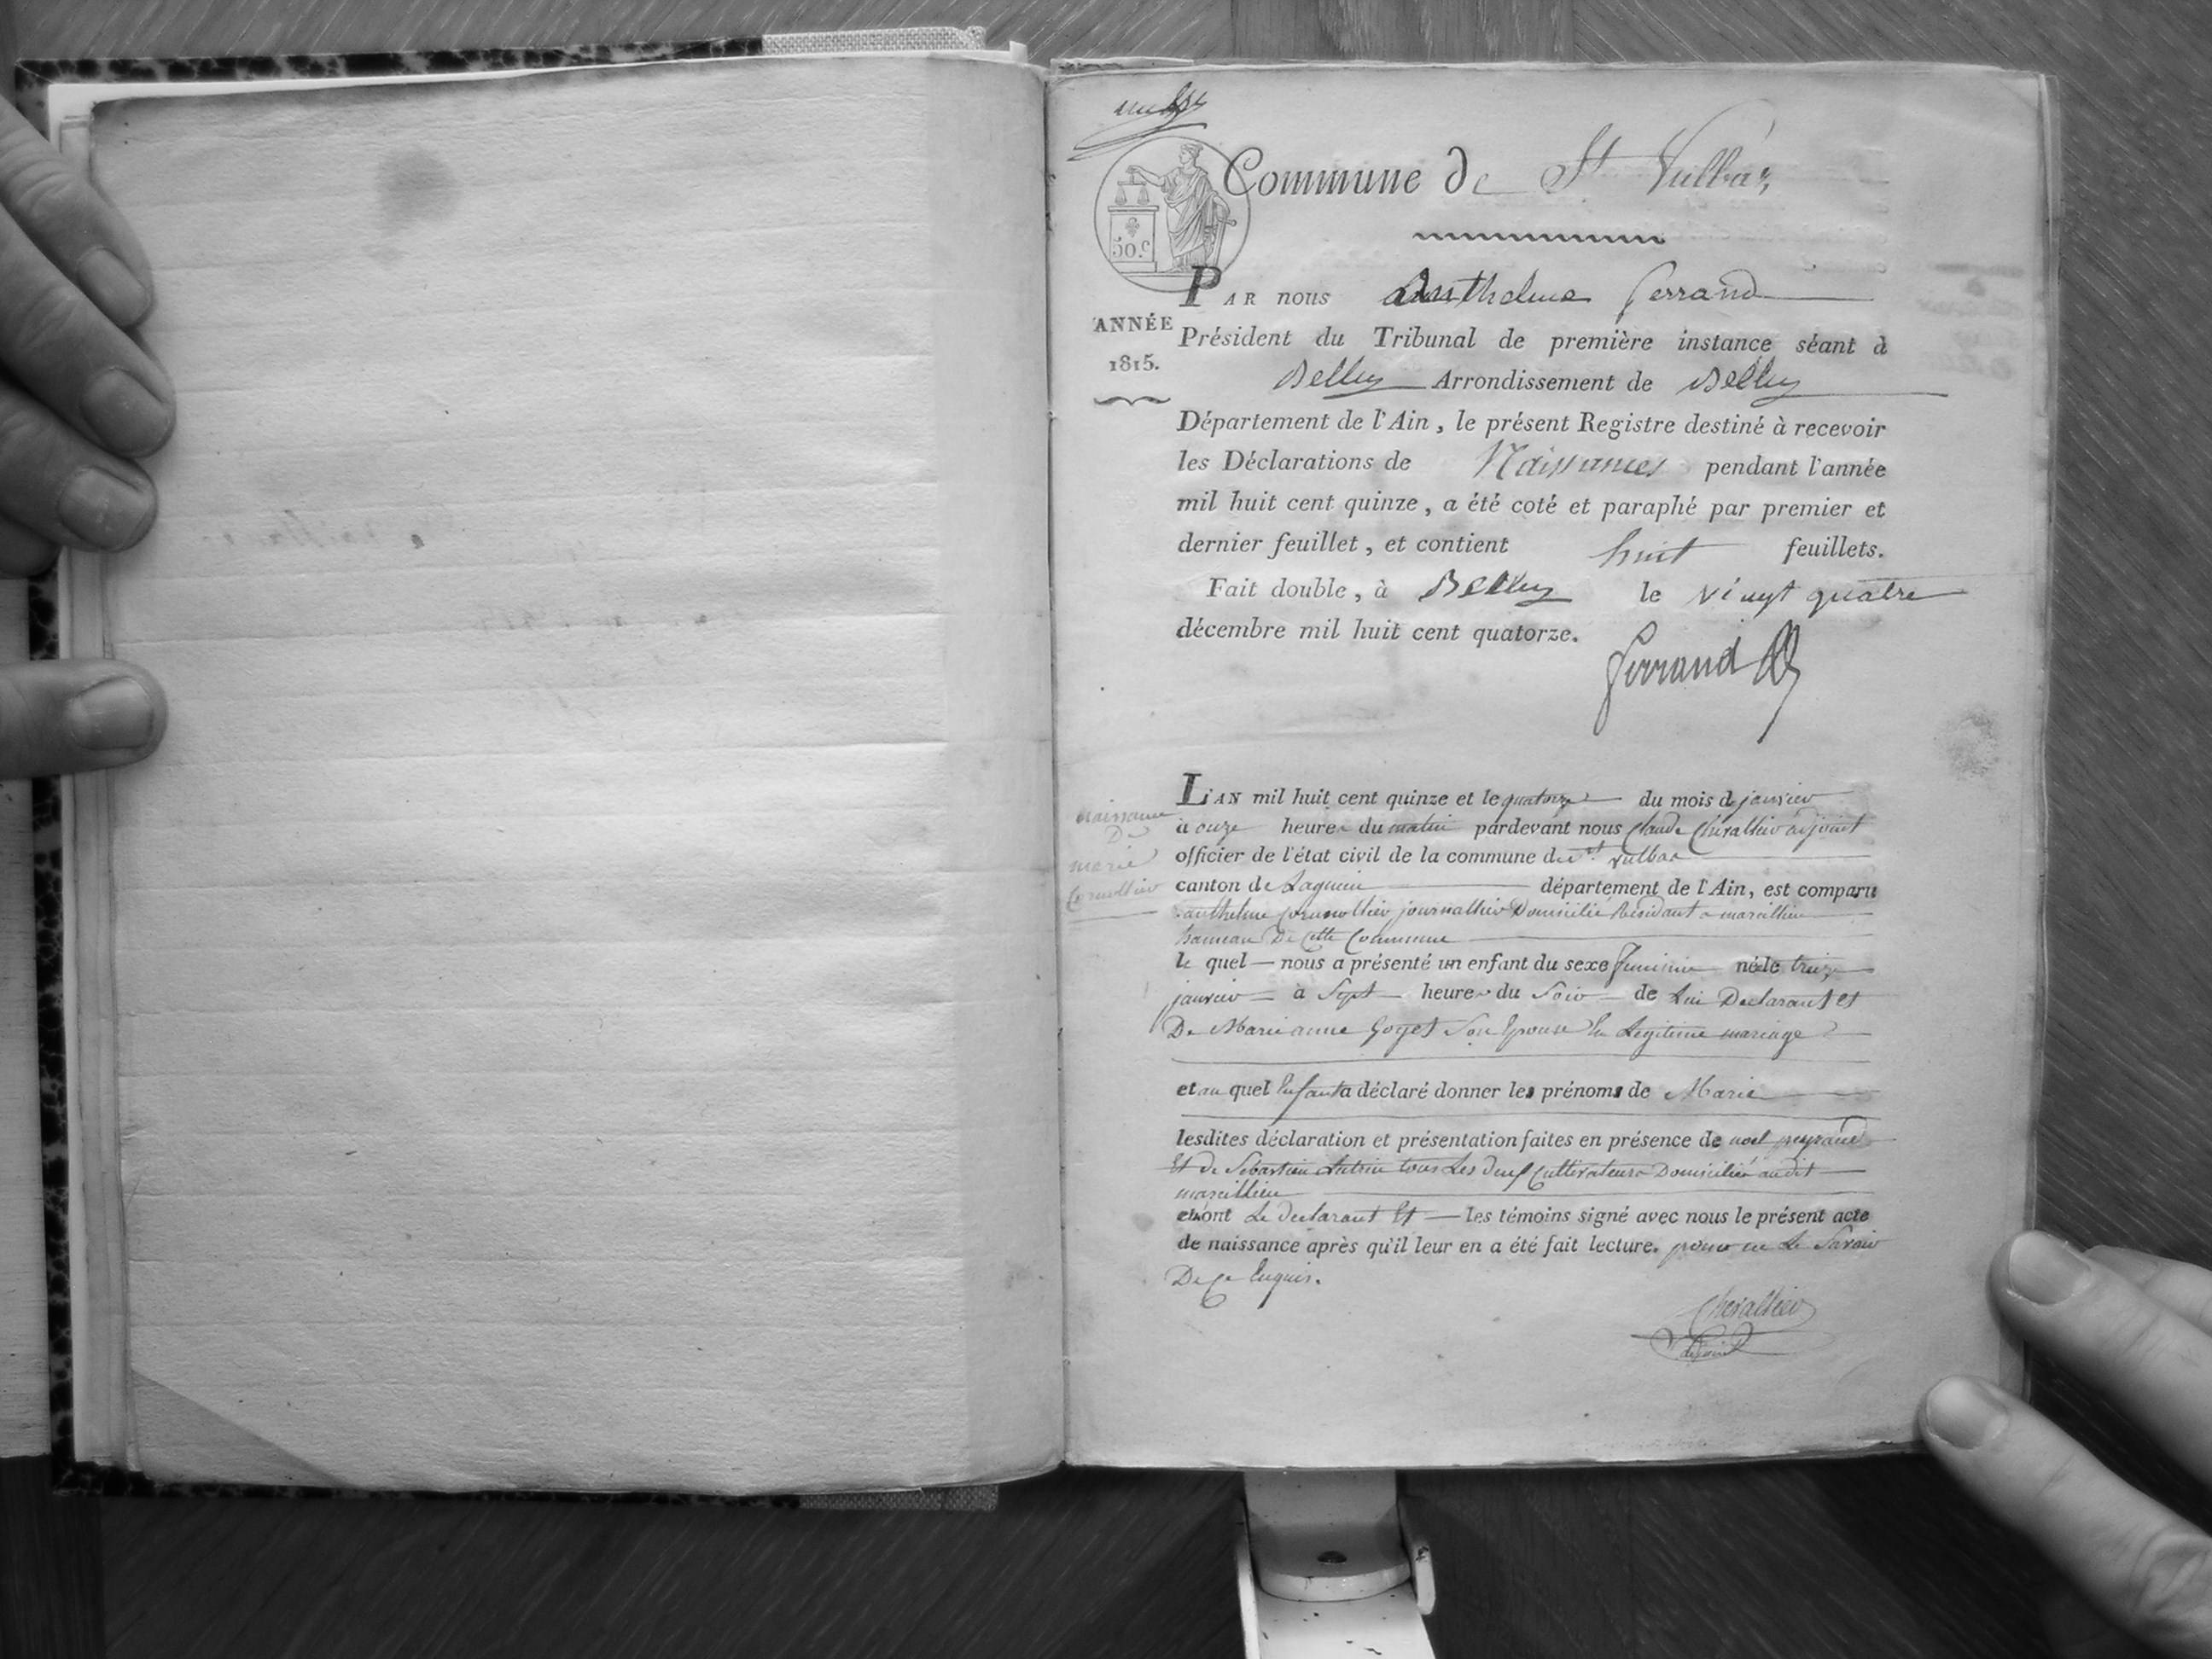 Commune de St Vulbas
50.c
PAR nous Anthelme Ferrand
ANNÉE
1815.
Président du Tribunal de première instance séant à
Belley Arrondissement de Belley
Département de l'Ain, le présent Registre destiné à recevoir
les Déclarations de Naissances pendant l'année
mil huit cent quinze, a été coté et paraphé par premier et
dernier feuillet, et contient huit feuillets.
Fait double, à Belley le vingt quatre
décembre mil huit cent quatorze.
Ferrand
naissance
De
marie
L'AN mil huit cent quinze et le quatorze du mois de janvier
à onze heures du matin pardevant nous Claude Chevallier adjoint
officier de l'état civil de la commune de st vulbas
canton de Lagnieu département de l'Ain, est comparu
anthelme journallier Domicilié Résidant a marcillieu
hameau De Cette Commune
le quel nous a présenté un enfant du sexe feminin né le treize
janvier à Sept heures du Soir de Lui Declarant et
De Marie anne goyet Son Epouse En Legitime mariage
et au quel Enfant a déclaré donner les prénoms de Marie
lesdites déclaration et présentation faites en présence de noel peyraud
Et de Sebastien tous Les deux Cultivateurs Domiciliés au dit
marcillieu
et ont Le declarant Et les témoins signé avec nous le présent acte
de naissance après qu'il leur en a été fait lecture. pour ne Le Savoir
De Ce Enquis.
Chevallier
adjoint